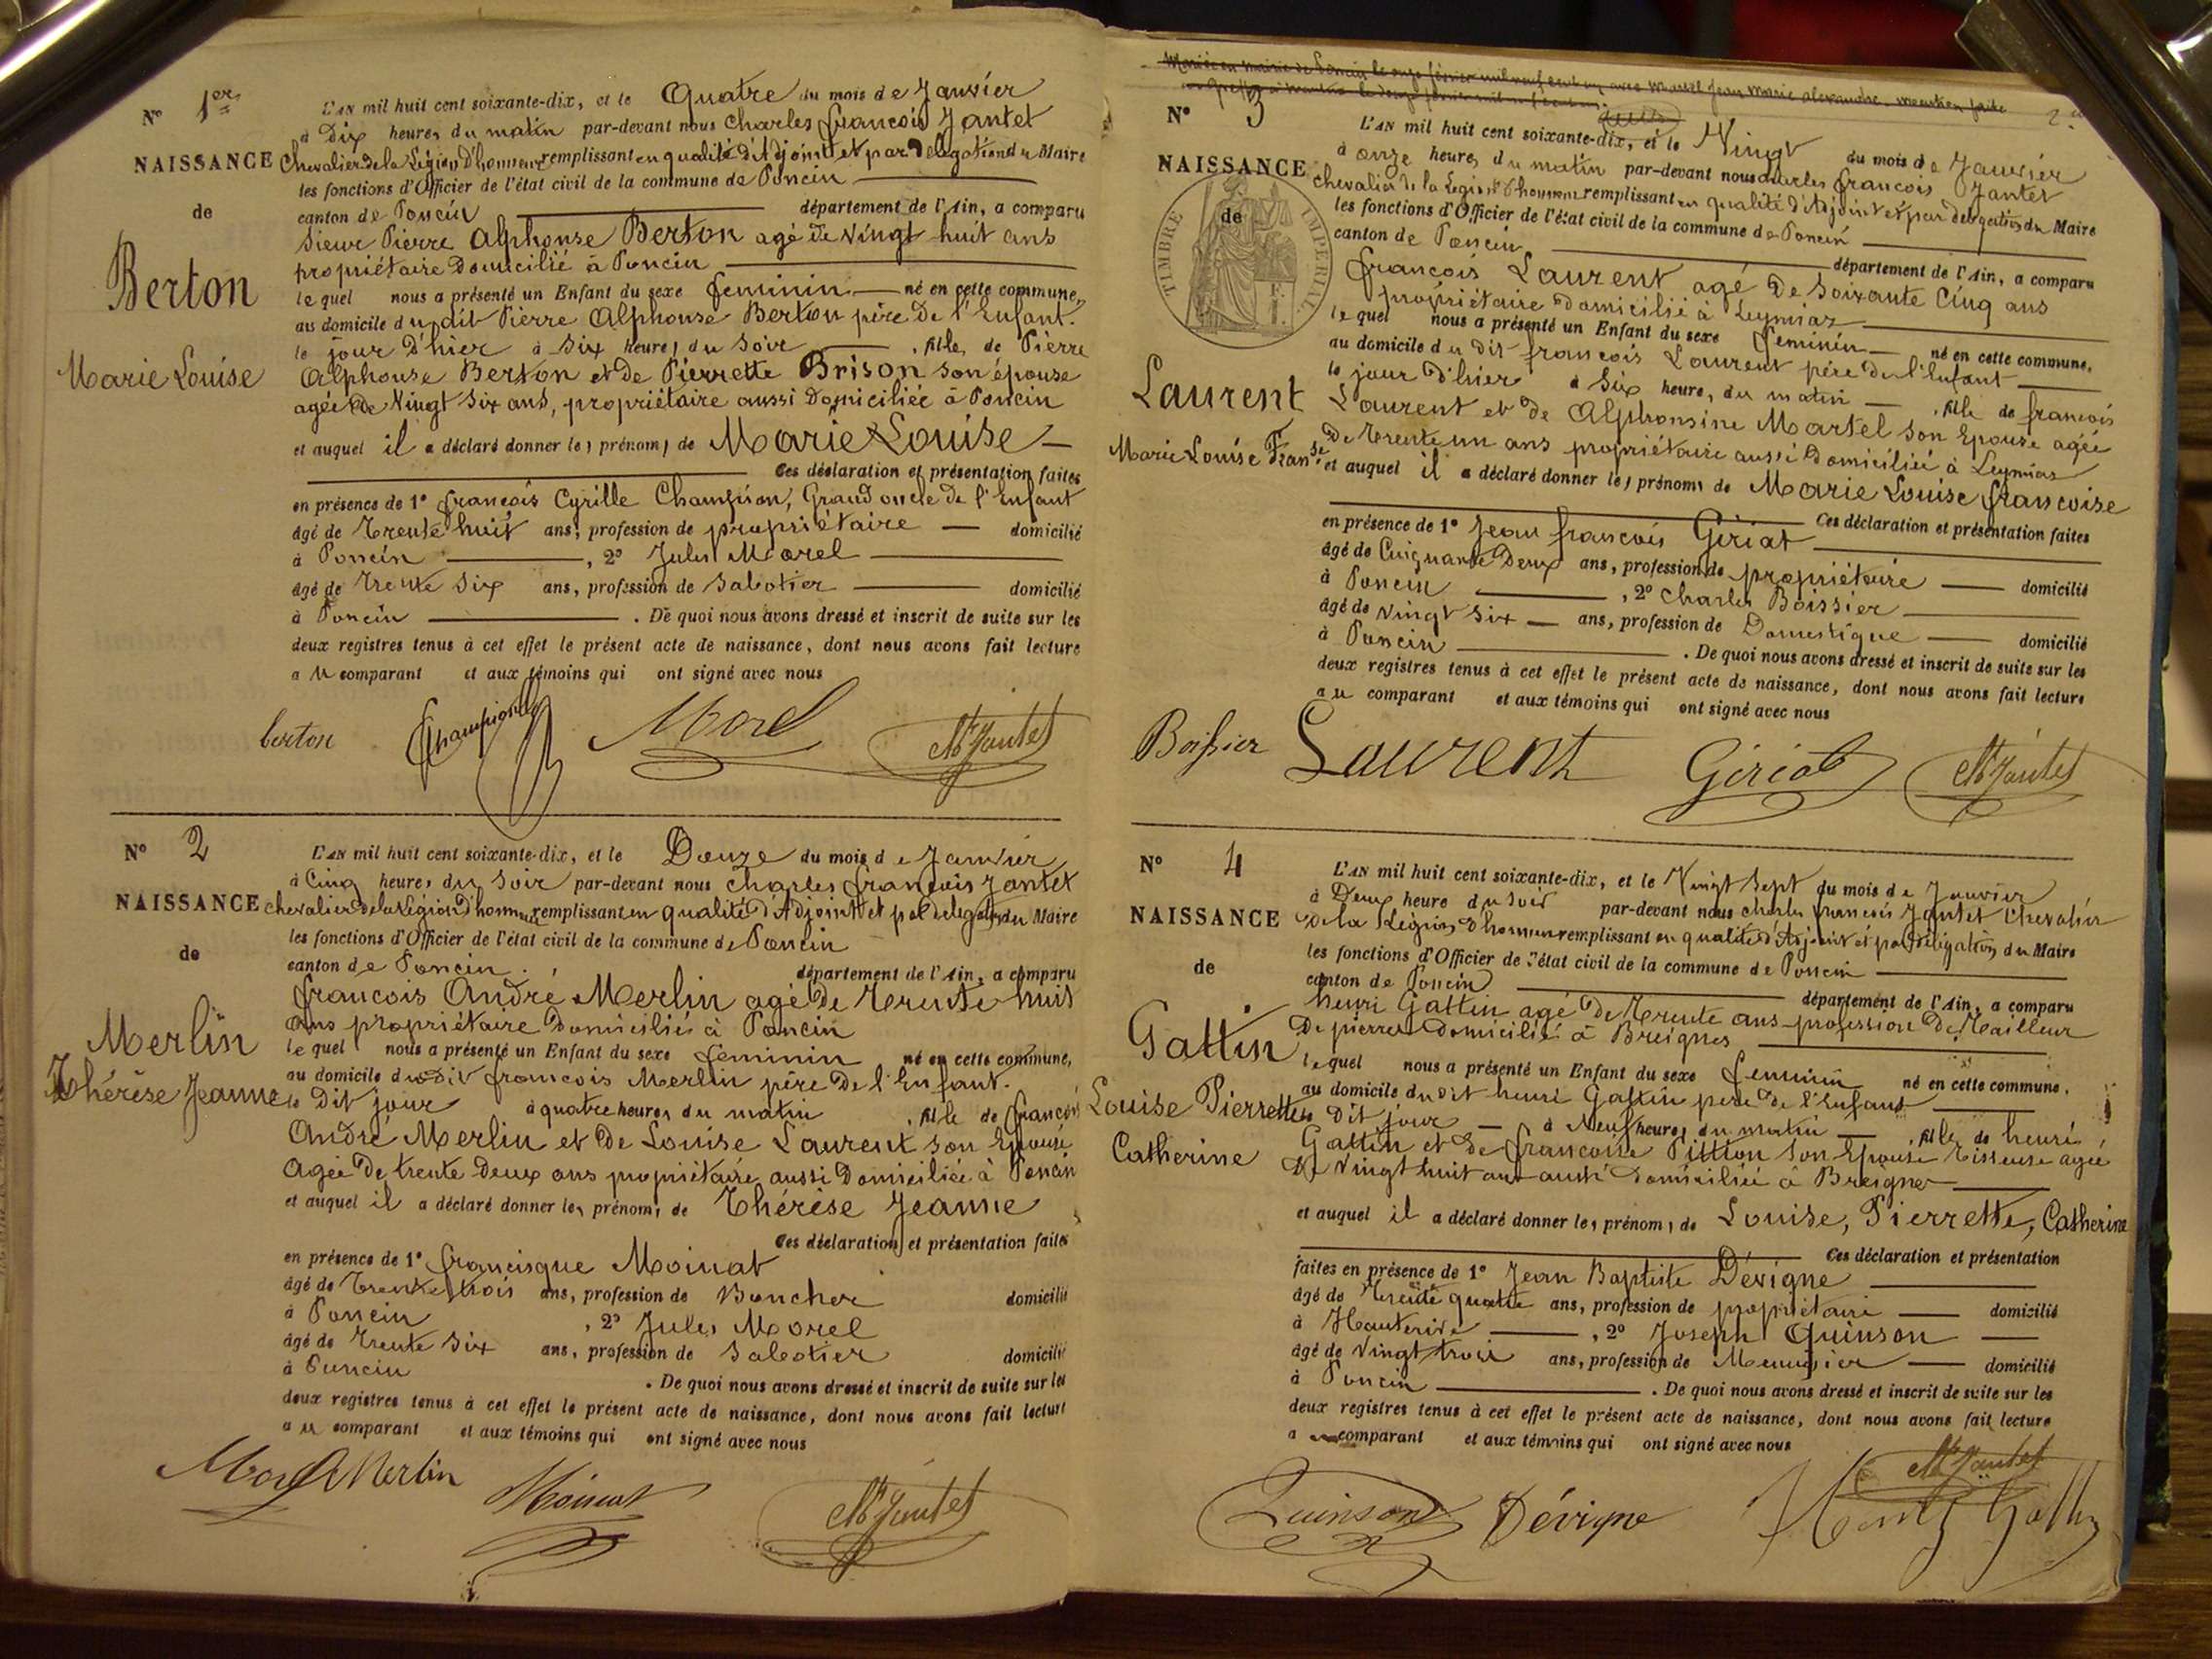 N° 1er
NAISSANCE
de
Berton
Marie Louise
L'AN mil huit cent soixante-dix, et le Quatre du mois de Janvier
à Dix heures du matin par-devant nous Charles françois Jantet
Chevalier de la Légion d'honneur remplissant en qualité d'Adjoint et par Délégation du Maire
les fonctions d'Officier de l'état civil de la commune de Poncin
canton de Poncin département de l'Ain, a comparu
Sieur Pierre Alphonse Berton agé de Vingt huit ans
propriétaire domicilié à Poncin
lequel nous a présenté un Enfant du sexe feminin né en cette commune,
au domicile du dit Pierre Alphonse Berton père de l'Enfant.
le jour d'hier à Six heures du Soir, fille de Pierre
Alphonse Berton et de Pierrette Brison son épouse
agée de Vingt Six ans, propriétaire aussi Domiciliée à Poncin
et auquel il a déclaré donner les prénoms de Marie Louise
Ces déclaration et présentation faites
en présence de 1° françois Cyrille Champion, Grand oncle de l'Enfant
âgé de Trente huit ans, profession de propriétaire domicilié
à Poncin, 2° Jules Morel
âgé de Trente Six ans, profession de Sabotier domicilié
à Poncin. De quoi nous avons dressé et inscrit de suite sur les
deux registres tenus à cet effet le présent acte de naissance, dont nous avons fait lecture
au comparant et aux témoins qui ont signé avec nous
berton Champion Morel Ch Jantet
N° 2
NAISSANCE
de
Merlin
Thérèse Jeanne
L'AN mil huit cent soixante-dix, et le Douze du mois de Janvier
à Cinq heures du Soir par-devant nous Charles françois Jantet
chevalier de la Légion D'honneur remplissant en qualité D'Adjoint et par délégation du Maire
les fonctions d'Officier de l'état civil de la commune de Poncin
canton de Poncin. département de l'Ain, a comparu
françois André Merlin agé de Trente huit
ans propriétaire Domicilié à Poncin
lequel nous a présenté un Enfant du sexe féminin né en cette commune,
au domicile du dit françois Merlin père de l'Enfant.
le Dit jour à quatre heures du matin, fille de françois
André Merlin et de Louise Laurent son Epouse
Agée De trente Deux ans propriétaire aussi Domiciliée à Poncin
et auquel il a déclaré donner les prénoms de Thérèse Jeanne
Ces déclaration et présentation faites
en présence de 1° francisque Moinat
âgé de Trente trois ans, profession de Boucher domicilié
à Poncin, 2° Jules Morel
âgé de Trente Six ans, profession de Sabotier domicilié
à Poncin. De quoi nous avons dressé et inscrit de suite sur les
deux registres tenus à cet effet le présent acte de naissance, dont nous avons fait lecture
au comparant et aux témoins qui ont signé avec nous
Morel Merlin Moinat Ch Jantet
Mariée en mairie de Poncin le onze février mil neuf cent un avec Martel Jean Marie Alexandre. mention faite
N° 3
NAISSANCE
de
TIMBRE IMPERIAL
Laurent
Marie Louise Franse
L'AN mil huit cent soixante-dix, et le Vingt du mois de Janvier
à onze heures du matin par-devant nous Charles françois Jantet
chevalier de la Légion d'honneur remplissant en qualité d'Adjoint et par délégation du Maire
les fonctions d'Officier de l'état civil de la commune de Poncin
canton de Poncin département de l'Ain, a comparu
françois Laurent agé De Soixante Cinq ans
propriétaire domicilié à Leymiaz
lequel nous a présenté un Enfant du sexe feminin né en cette commune,
au domicile du dit françois Laurent père de l'Enfant
le jour d'hier à Six heures du matin, fille de françois
Laurent et de Alphonsine Martel son Epouse agée
de trente un ans propriétaire aussi domiciliée à Leymiaz
et auquel il a déclaré donner les prénoms de Marie Louise françoise
Ces déclaration et présentation faites
en présence de 1° Jean françois Gériat
âgé de Cinquante Deux ans, profession de propriétaire domicilié
à Poncin, 2° Charles Boissier
âgé de Vingt Six ans, profession de Domestique domicilié
à Poncin. De quoi nous avons dressé et inscrit de suite sur les
deux registres tenus à cet effet le présent acte de naissance, dont nous avons fait lecture
au comparant et aux témoins qui ont signé avec nous
Boissier Laurent Gériat Ch Jantet
N° 4
NAISSANCE
de
Gattin
Louise Pierrette
Catherine
L'AN mil huit cent soixante-dix, et le Vingt Sept du mois de Janvier
à Deux heure du Soir par-devant nous Charles françois Jantet Chevalier
de la Légion d'honneur remplissant en qualité d'Adjoint et par délégation du Maire
les fonctions d'Officier de l'état civil de la commune de Poncin
canton de Poncin département de l'Ain, a comparu
henri Gattin agé De Trente ans profession de Tailleur
De pierres domicilié à Breignes
lequel nous a présenté un Enfant du sexe feminin né en cette commune.
au domicile du dit henri Gattin père de l'Enfant
le Dit jour à Neuf heures du matin, fille de henri
Gattin et de françoise Pittion son Epouse Tisseuse agée
de Vingt huit ans aussi domiciliée à Breignes
et auquel il a déclaré donner les prénoms de Louise, Pierrette, Catherine
Ces déclaration et présentation
faites en présence de 1° Jean Baptiste Dévigne
âgé de Trente quatre ans, profession de propriétaire domicilié
à Hauterive, 2° Joseph Quinson
âgé de Vingt trois ans, profession de Menuisier domicilié
à Poncin. De quoi nous avons dressé et inscrit de suite sur les
deux registres tenus à cet effet le présent acte de naissance, dont nous avons fait lecture
au comparant et aux témoins qui ont signé avec nous
Quinson Dévigne Ch Jantet Henri Gattin